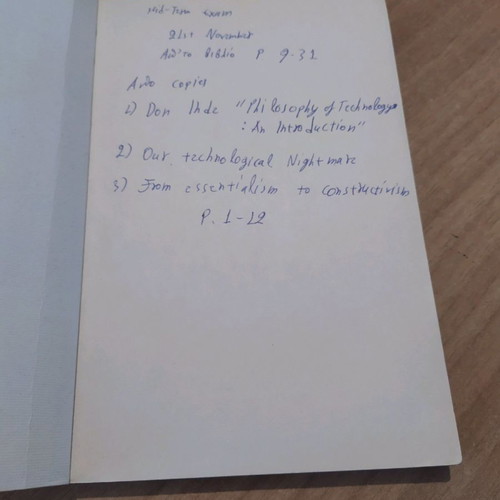 Mid-Term Exam
21st November
Από το Βιβλίο P 9-31
Από copies
1) Don Ihde "Philosophy of Technology
: An Introduction"
2) Our technological Nightmare
3) From essentialism to constructivism
P. 1-12